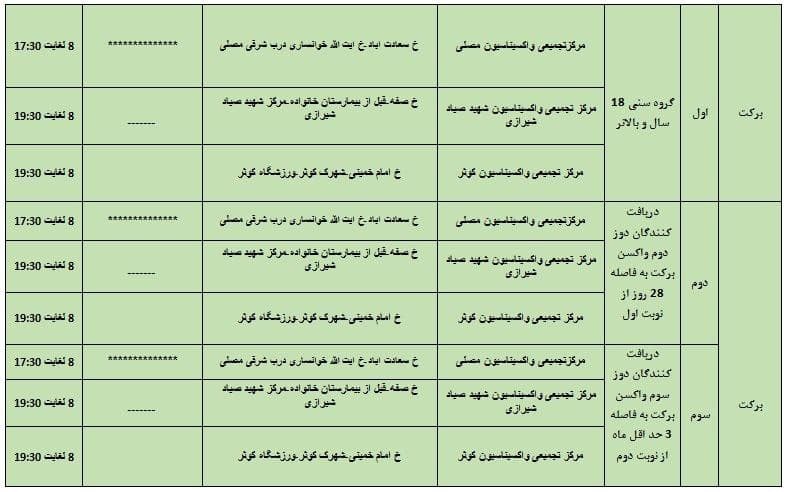 برکت
اول
گروه سنی 18
سال و بالاتر
مرکزتجمیعی واکسیناسیون مصلی
خ سعادت اباد-خ ایت الله خوانساری درب شرقی مصلی
**************
8 لغایت 17:30
مرکز تجمیعی واکسیناسیون شهید صیاد
شیرازی
خ صفه-قبل از بیمارستان خانواده-مرکز شهید صیاد
شیرازی
-------
8 لغایت 19:30
مرکز تجمیعی واکسیناسیون کوثر
خ امام خمینی-شهرک کوثر-ورزشگاه کوثر
8 لغایت 19:30
برکت
دوم
دریافت
کنندگان دوز
دوم واکسن
برکت به فاصله
28 روز از
نوبت اول
مرکزتجمیعی واکسیناسیون مصلی
خ سعادت اباد-خ ایت الله خوانساری درب شرقی مصلی
**************
8 لغایت 17:30
مرکز تجمیعی واکسیناسیون شهید صیاد
شیرازی
خ صفه-قبل از بیمارستان خانواده-مرکز شهید صیاد
شیرازی
-------
8 لغایت 19:30
مرکز تجمیعی واکسیناسیون کوثر
خ امام خمینی-شهرک کوثر-ورزشگاه کوثر
8 لغایت 19:30
سوم
دریافت
کنندگان دوز
سوم واکسن
برکت به فاصله
3 حد اقل ماه
از نوبت دوم
مرکزتجمیعی واکسیناسیون مصلی
خ سعادت اباد-خ ایت الله خوانساری درب شرقی مصلی
**************
8 لغایت 17:30
مرکز تجمیعی واکسیناسیون شهید صیاد
شیرازی
خ صفه-قبل از بیمارستان خانواده-مرکز شهید صیاد
شیرازی
-------
8 لغایت 19:30
مرکز تجمیعی واکسیناسیون کوثر
خ امام خمینی-شهرک کوثر-ورزشگاه کوثر
8 لغایت 19:30